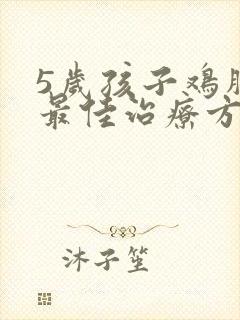 5岁孩子鸡胸
最佳治疗方
沐子笙